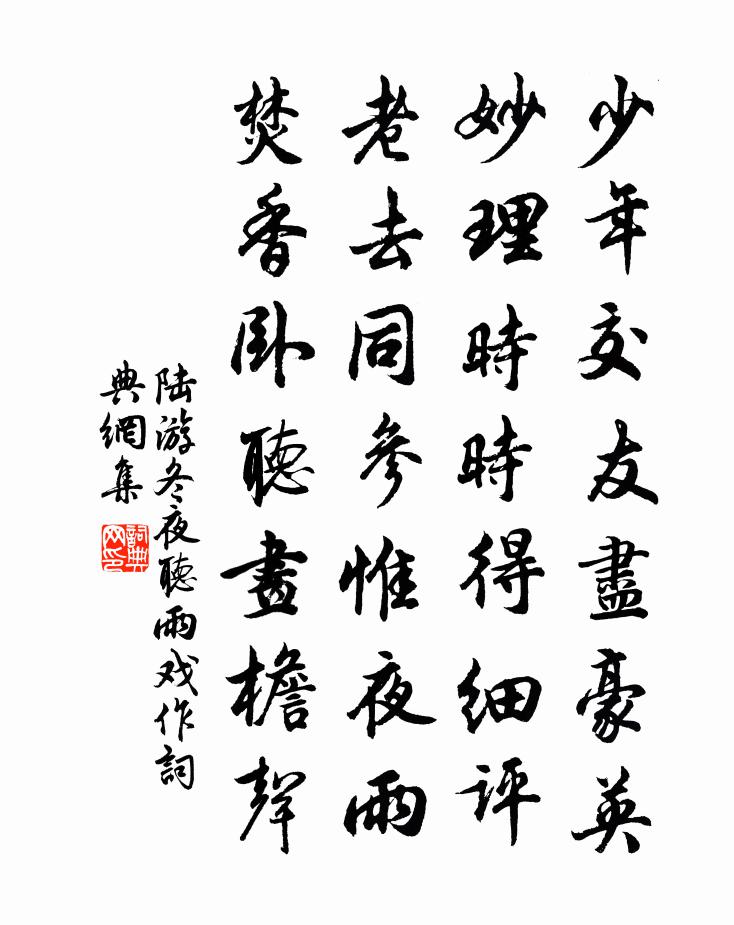 少年交友盡豪英
妙理時時得細評
老去同參惟夜雨
焚香臥聽畫檐聲
陆游冬夜聽雨戏作詞
典網集
詞典
网印